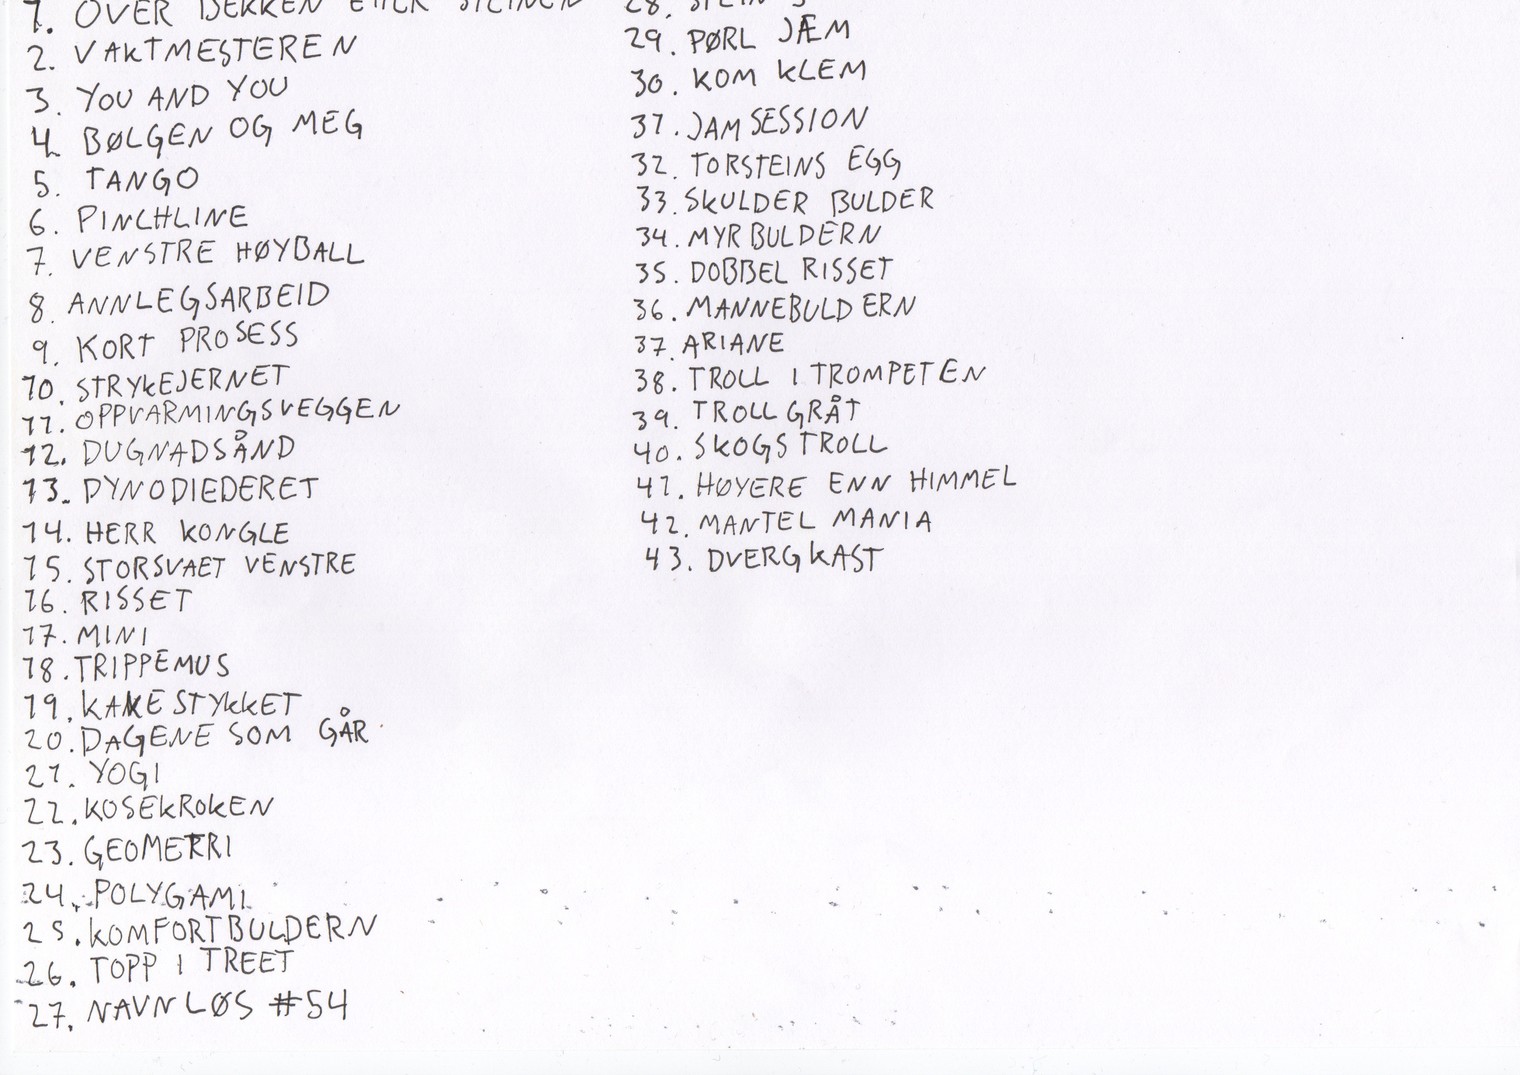 1. OVER BEKKEN ETTER STEINEN
2. VAKTMESTEREN
3. YOU AND YOU
4. BØLGEN OG MEG
5. TANGO
6. PINCHLINE
7. VENSTRE HØYBALL
8. ANNLEGSARBEID
9. KORT PROSESS
10. STRYKEJERNET
11. OPPVARMINGSVEGGEN
12. DUGNADSÅND
13. DYNODIEDERET
14. HERR KONGLE
15. STORSVAET VENSTRE
16. RISSET
17. MINI
18. TRIPPEMUS
19. KAKESTYKKET
20. DAGENE SOM GÅR
21. YOGI
22. KOSEKROKEN
23. GEOMETRI
24. POLYGAMI
25. KOMFORTBULDERN
26. TOPP I TREET
27. NAVNLØS #54
28.
29. PØRL JÆM
30. KOM KLEM
31. JAM SESSION
32. TORSTEINS EGG
33. SKULDER BULDER
34. MYRBULDERN
35. DOBBEL RISSET
36. MANNEBULDERN
37. ARIANE
38. TROLL I TROMPETEN
39. TROLLGRÅT
40. SKOGSTROLL
41. HØYERE ENN HIMMEL
42. MANTEL MANIA
43. DVERGKAST